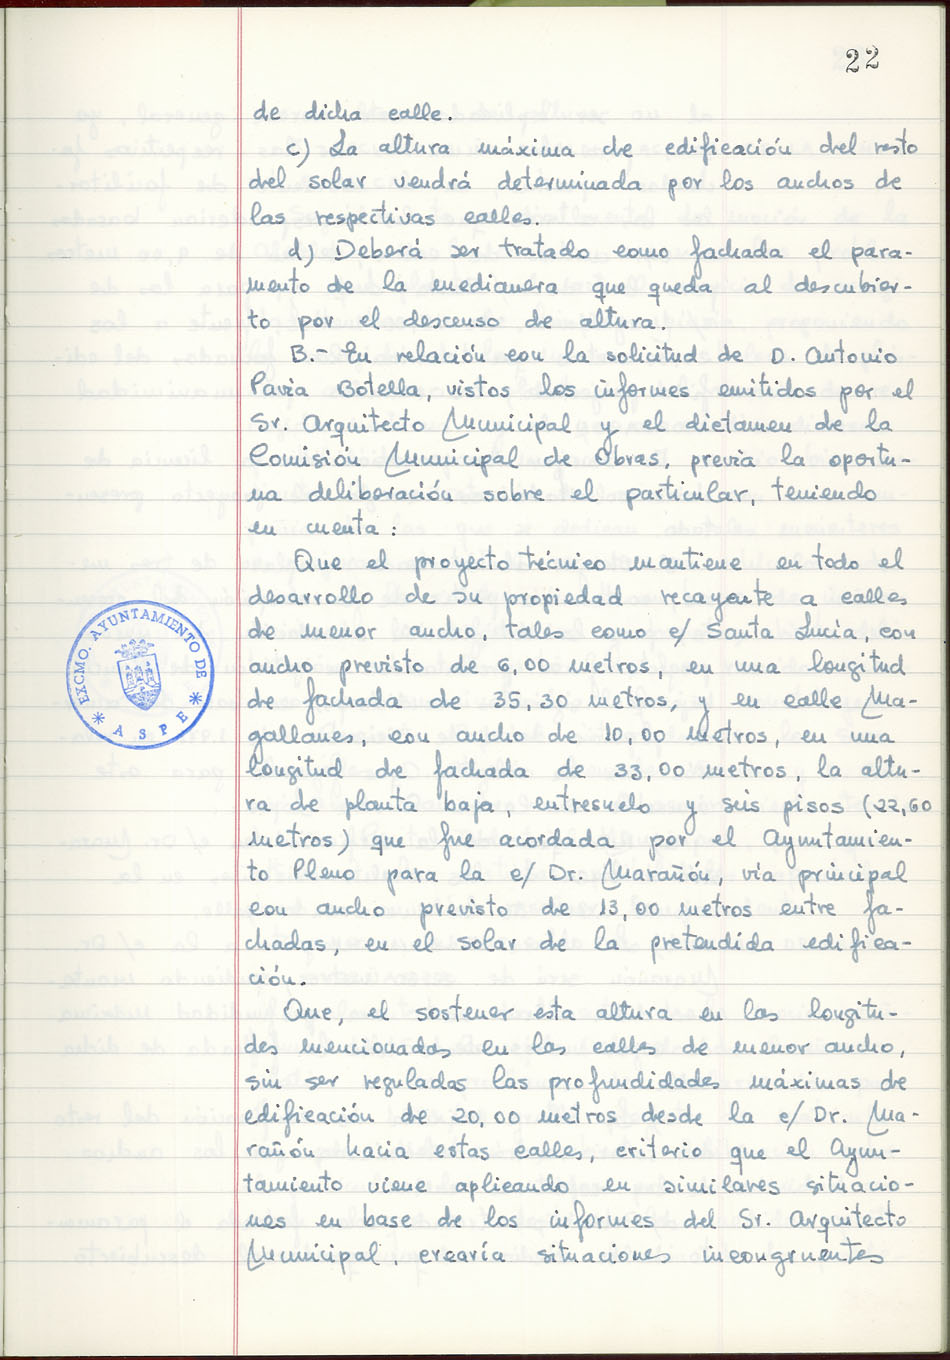 22
de dicha calle.
c) La altura máxima de edificación del resto
del solar vendrá determinada por los anchos de
las respectivas calles.
d) Deberá ser tratado como fachada el para-
mento de la medianera que queda al descubier-
to por el descenso de altura.
B.- En relación con la solicitud de D. Antonio
Pavia Botella, vistos los informes emitidos por el
Sr. Arquitecto Municipal y el dictamen de la
Comisión Municipal de Obras, previa la oportu-
na deliberación sobre el particular, teniendo
en cuenta:
Que el proyecto técnico mantiene en todo el
desarrollo de su propiedad recayente a calles
de menor ancho, tales como c/ Santa Lucia, con
ancho previsto de 6,00 metros, en una longitud
de fachada de 35,30 metros, y en calle Ma-
gallanes, con ancho de 10,00 metros, en una
longitud de fachada de 33,00 metros, la altu-
ra de planta baja, entresuelo y seis pisos (22,60
metros) que fue acordada por el Ayuntamien-
to Pleno para la c/ Dr. Marañón, vía principal
con ancho previsto de 13,00 metros entre fa-
chadas, en el solar de la pretendida edifica-
ción.
Que, el sostener esta altura en las longitu-
des mencionadas en las calles de menor ancho,
sin ser reguladas las profundidades máximas de
edificación de 20,00 metros desde la c/ Dr. Ma-
rañón hacia estas calles, criterio que el Ayun-
tamiento viene aplicando en similares situacio-
nes en base de los informes del Sr. Arquitecto
Municipal, crearía situaciones incongruentes
EXCMO. AYUNTAMIENTO DE
* ASPE *